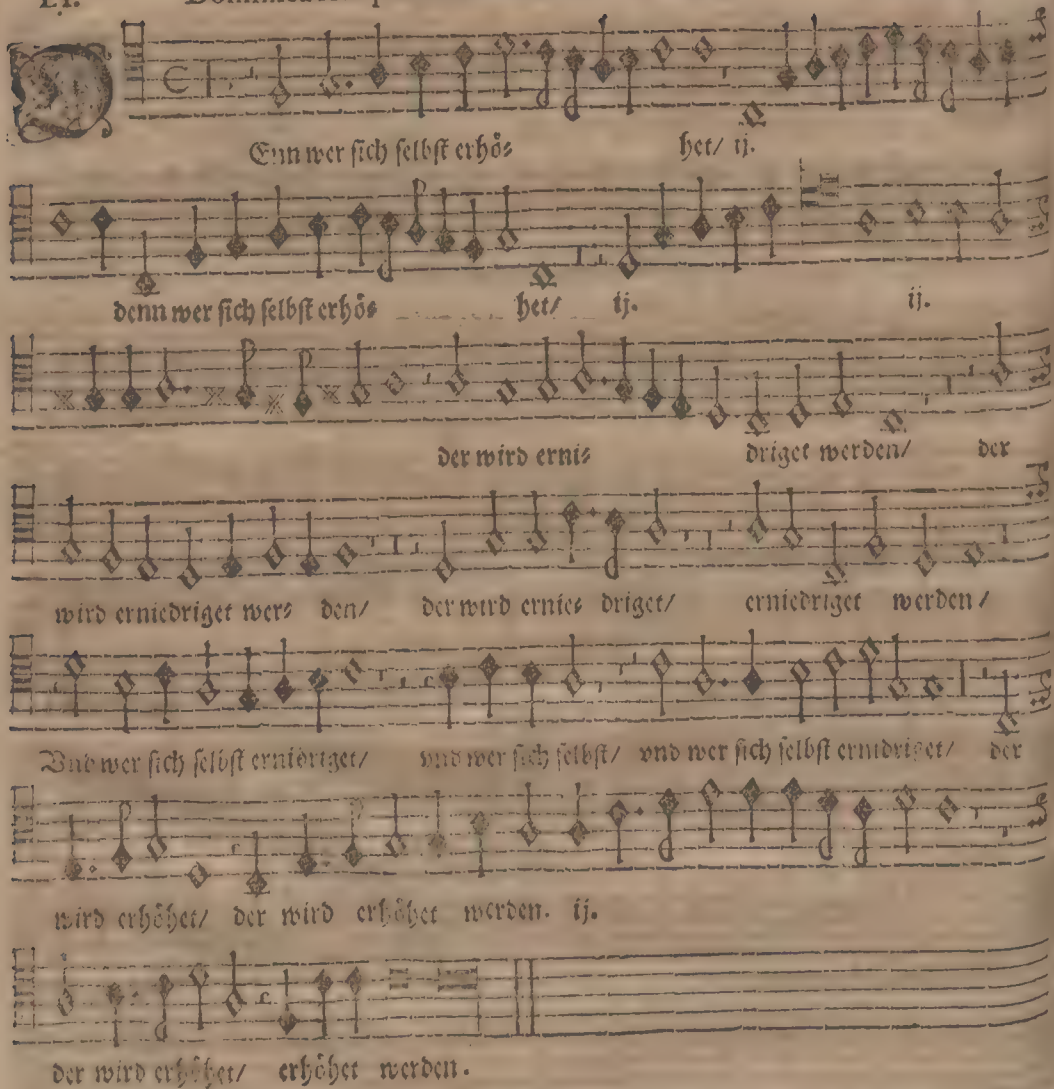 LI.
Denn wer ſich ſelbſt erhö⸗ het/ ij.
denn wer ſich ſelbſt erhö⸗ het/ ij. ij.
der wird erni⸗ driget werden/ der
wird erniedriget wer⸗ den/ der wird ernie⸗ driget/ erniedriget werden/
Vnd wer ſich ſelbſt erniedriget/ vnd wer ſich ſelbſt/ vnd wer ſich ſelbſt ernidriget/ der
wird erhöhet/ der wird erhöhet werden. ij.
der wird erhöhet/ erhöhet werden.